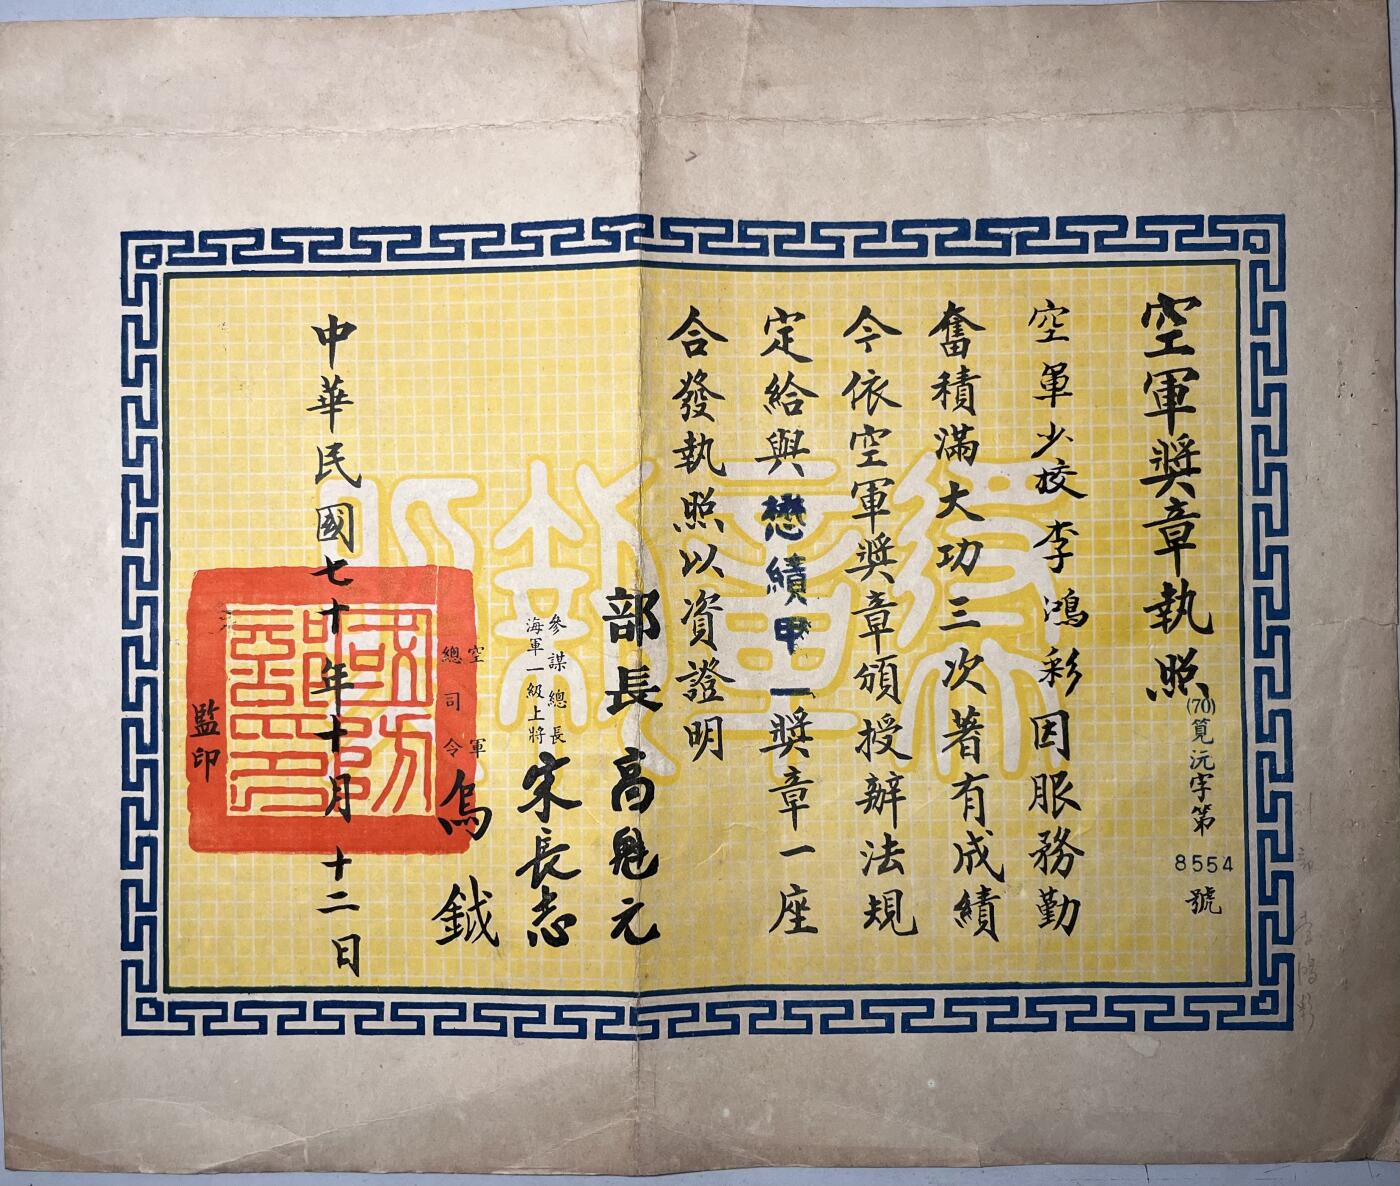 空軍奬章執照
(70)筧沅字第8554號
空軍少校李鴻彩因服務勤
奮積滿大功三次著有成績
今依空軍奬章頒授辦法規
定給與懋績甲一奬章一座
合發執照以資證明
部長高魁元
參謀總長
海軍一級上將
宋長志
空軍
總司令
烏鉞
中華民國七十年十月十二日
監印
國防部印
奬章執照
李鴻彩